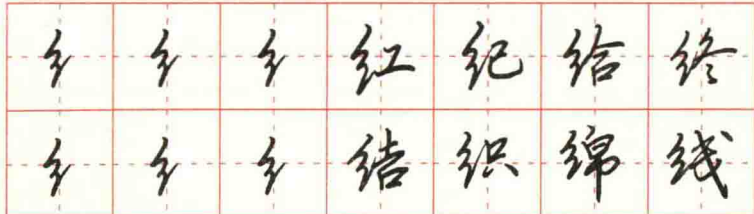 纟 纟 纟 红 纪 给 终
纟 纟 纟 结 织 绵 线